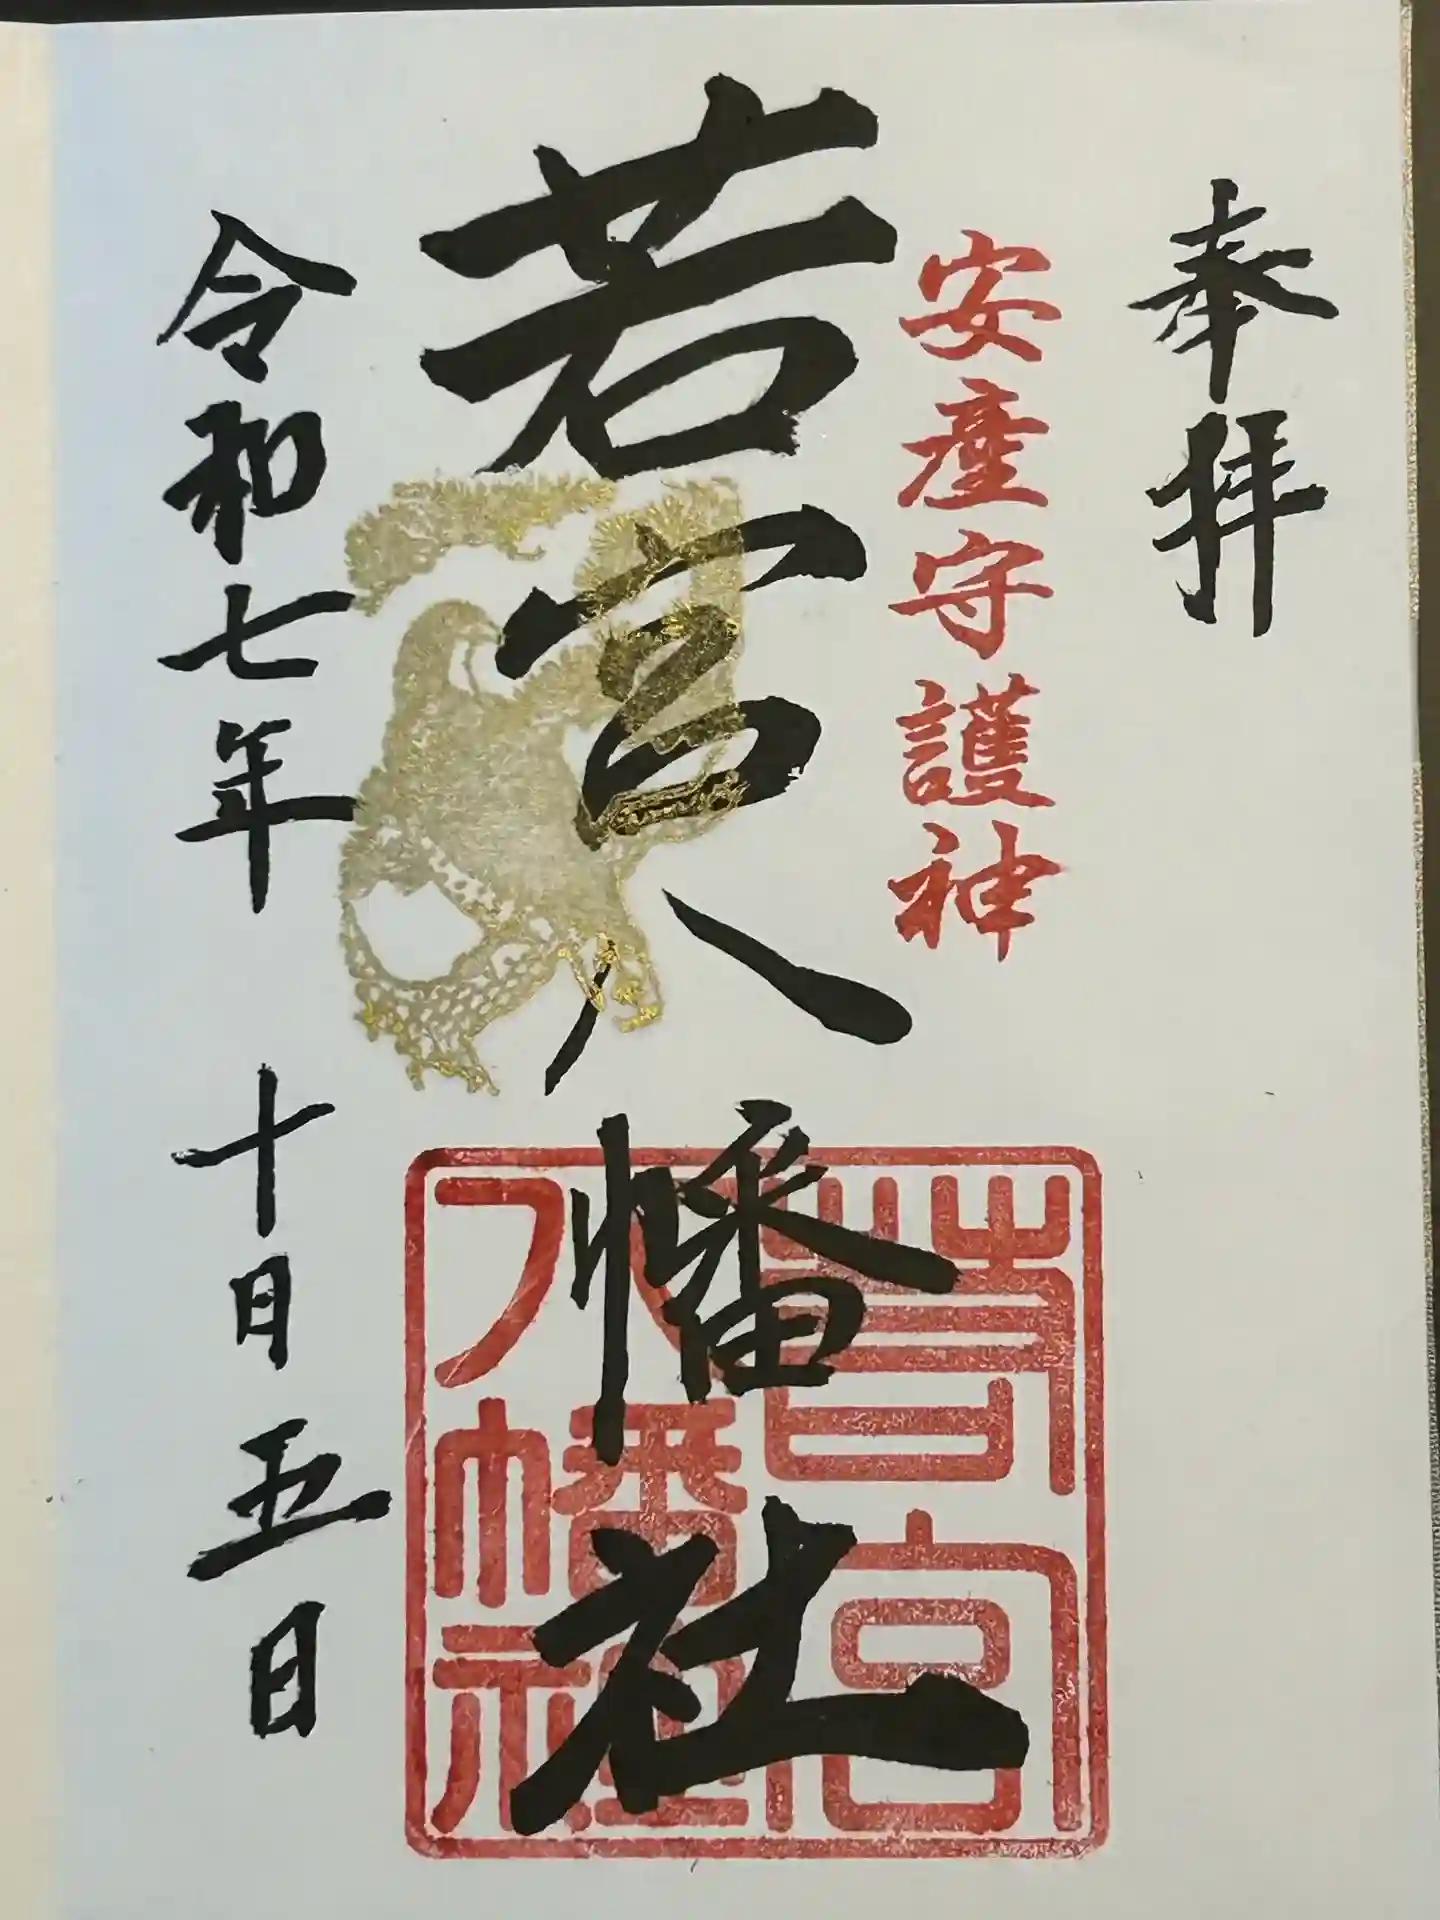 奉拝
安産守護神
若宮八幡社
令和七年十日五日
若宮
八幡社